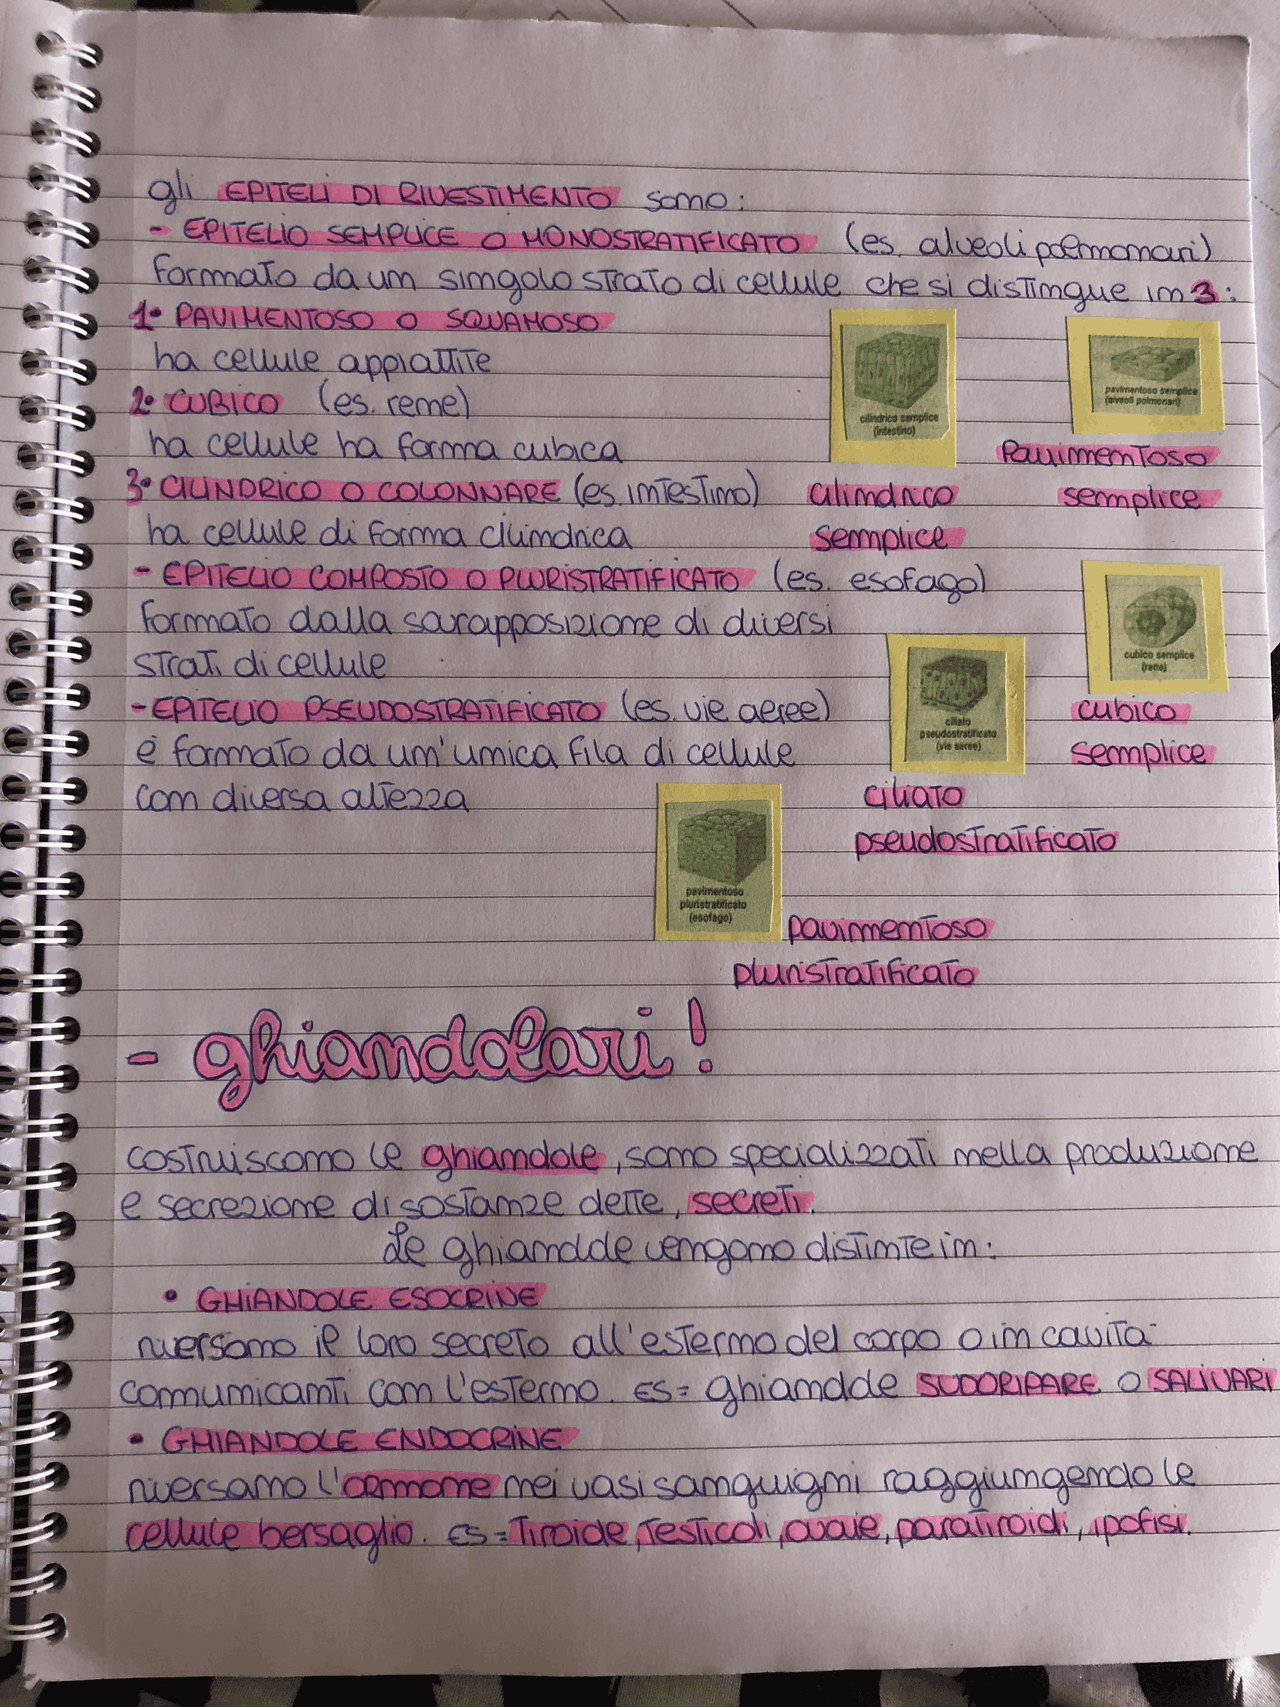 gli EPITELI DI RIVESTIMENTO sono:
- EPITELIO SEMPLICE O MONOSTRATIFICATO (es. alveoli polmonari)
formato da un singolo strato di cellule che si distingue in 3:
1• PAVIMENTOSO O SQUAMOSO
ha cellule appiattite
2• CUBICO (es. rene)
ha cellule ha forma cubica
3• CILINDRICO O COLONNARE (es. intestino)
ha cellule di forma cilindrica
cilindrico semplice
(intestino)
cilindrico
semplice
pavimentoso semplice
(alveoli polmonari)
Pavimentoso
semplice
- EPITELIO COMPOSTO O PLURISTRATIFICATO (es. esofago)
formato dalla sovrapposizione di diversi
strati di cellule
- EPITELIO PSEUDOSTRATIFICATO (es. vie aeree)
è formato da un'unica fila di cellule
con diversa altezza
cubico semplice
(rene)
cubico
semplice
ciliato
pseudostratificato
(vie aeree)
ciliato
pseudostratificato
pavimentoso
pluristratificato
(esofago)
pavimentoso
pluristratificato
- ghiandolari!
costruiscono le ghiandole, sono specializzati nella produzione
e secrezione di sostanze dette, secreti.
Le ghiandole vengono distinte in:
• GHIANDOLE ESOCRINE
riversano il loro secreto all'esterno del corpo o in cavità
comunicanti con l'esterno. ES= ghiandole SUDORIPARE O SALIVARI
• GHIANDOLE ENDOCRINE
riversano l'ormone nei vasi sanguigni raggiungendo le
cellule bersaglio. ES= Tiroide, Testicoli, ovaie, paratiroidi, ipofisi.